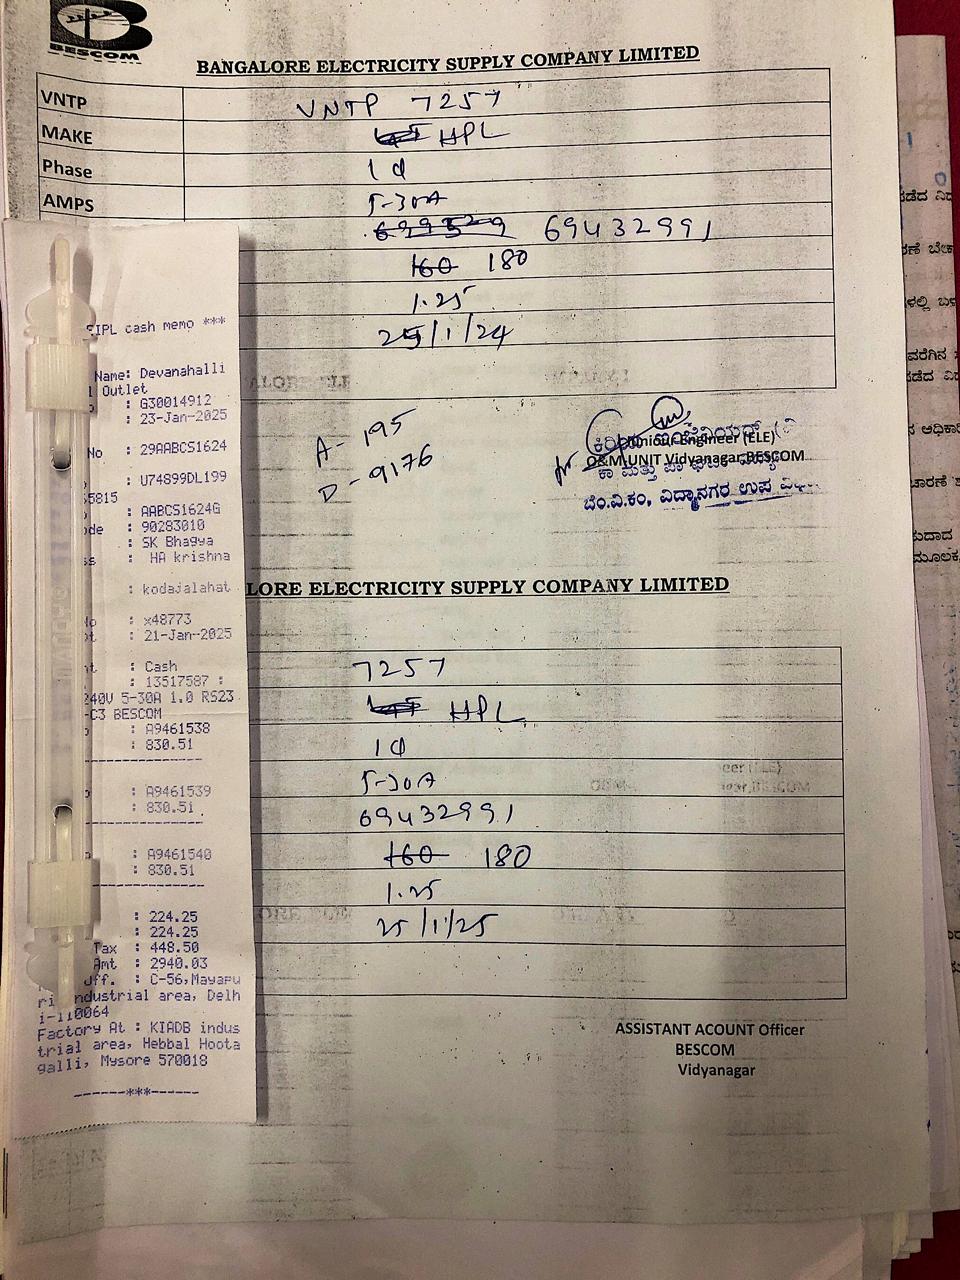 BESCOM
BANGALORE ELECTRICITY SUPPLY COMPANY LIMITED
VNTP VNTP 7257
MAKE HPL
Phase 1 Φ
AMPS 5-30A
69432991
160 180
1.25
25/1/24
A - 195
D - 9176
Junior Engineer (ELE)
O&M UNIT Vidyanagar, BESCOM
ಬೆಂ.ವಿ.ಕಂ, ವಿದ್ಯಾನಗರ ಉಪ
LORE ELECTRICITY SUPPLY COMPANY LIMITED
7257
HPL
1 Φ
5-30A
69432991
160 180
1.25
25/1/25
ASSISTANT ACOUNT Officer
BESCOM
Vidyanagar
IPL cash memo ***
Name: Devanahalli
Outlet
: G30014912
: 23-Jan-2025
No : 29AABCS1624
: U74899DL199
5815
: AABCS1624G
ode : 90283010
: SK Bhagya
ss : HA krishna
: kodajalahat
No : x48773
: 21-Jan-2025
: Cash
: 13517587 :
240V 5-30A 1.0 RS23
-C3 BESCOM
: A9461538
: 830.51
: A9461539
: 830.51
: A9461540
: 830.51
: 224.25
: 224.25
Tax : 448.50
Amt : 2940.03
Off. : C-56,Mayapu
ri industrial area, Delh
i-110064
Factory At : KIADB indus
trial area, Hebbal Hoota
galli, Mysore 570018
------***------